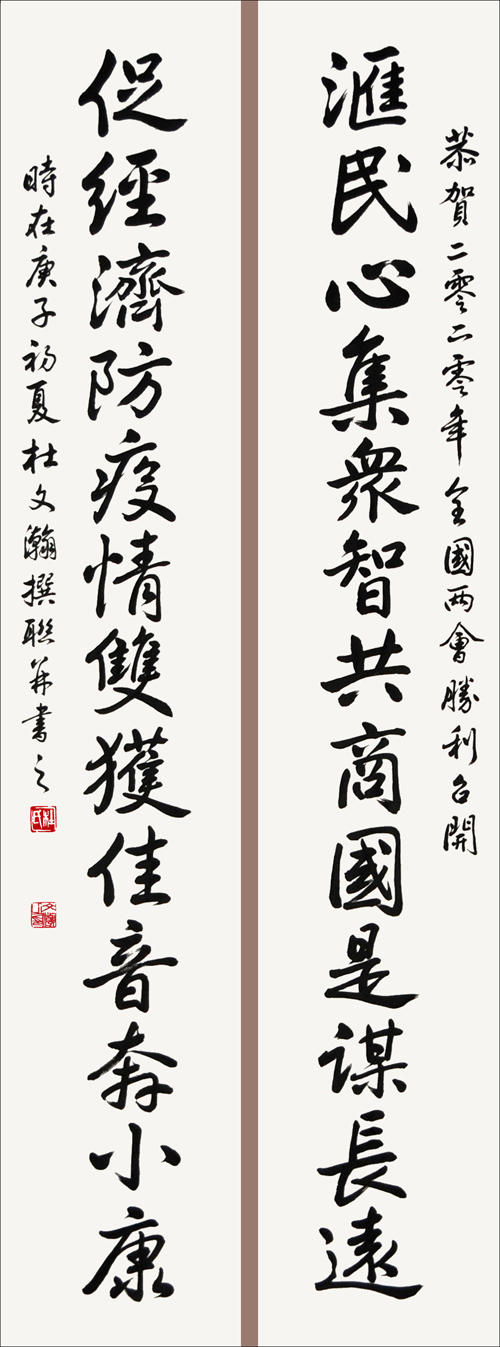 恭賀二零二零年全國两會勝利召開
滙民心集衆智共商國是謀長遠
促經濟防疫情雙獲佳音奔小康
時在庚子初夏杜文瀚撰聯并書之
杜氏